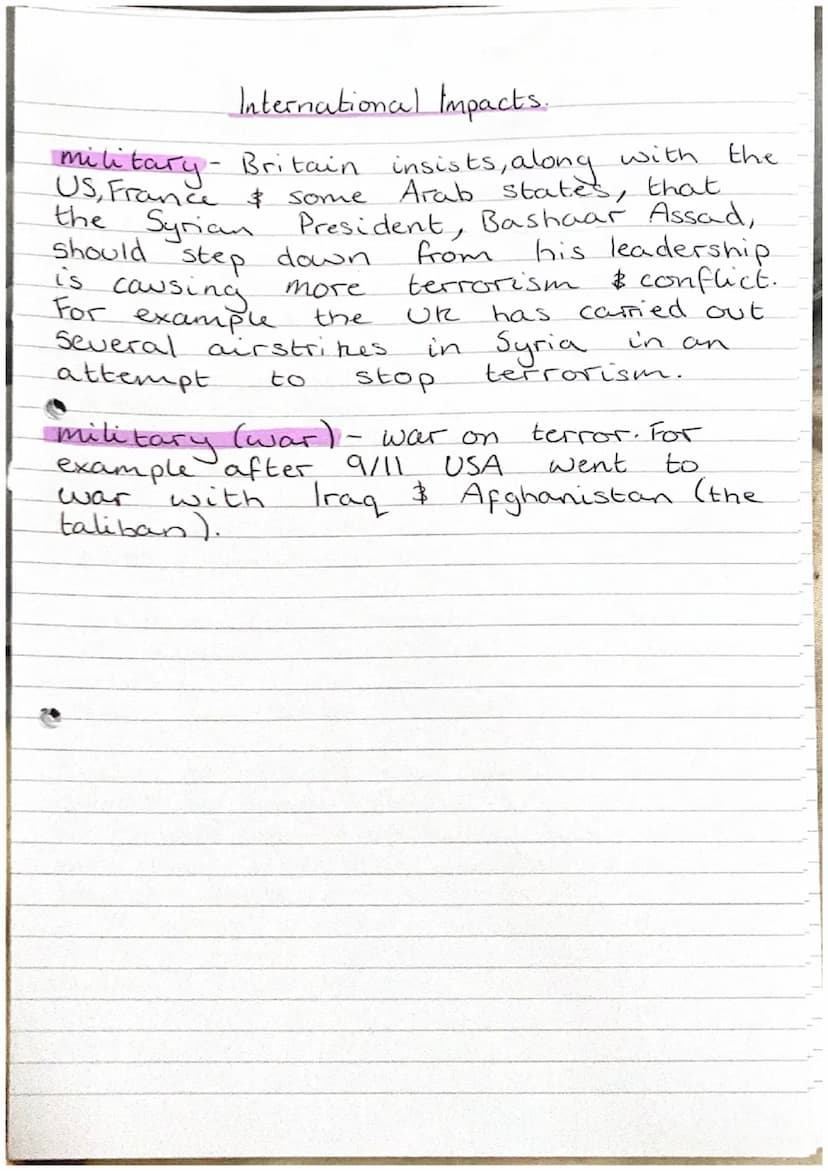 International Impacts.
military - Britain insists, along with the
US, France & some Arab states, that
the Syrian President, Bashaar Assad,
should step down from his leadership
is causing more terrorism & conflict.
For example the UK has carried out
several airstrikes in Syria in an
attempt to stop terrorism.
military (war) - war on terror. For
example after 9/11 USA went to
war with Iraq & Afghanistan (the
taliban).